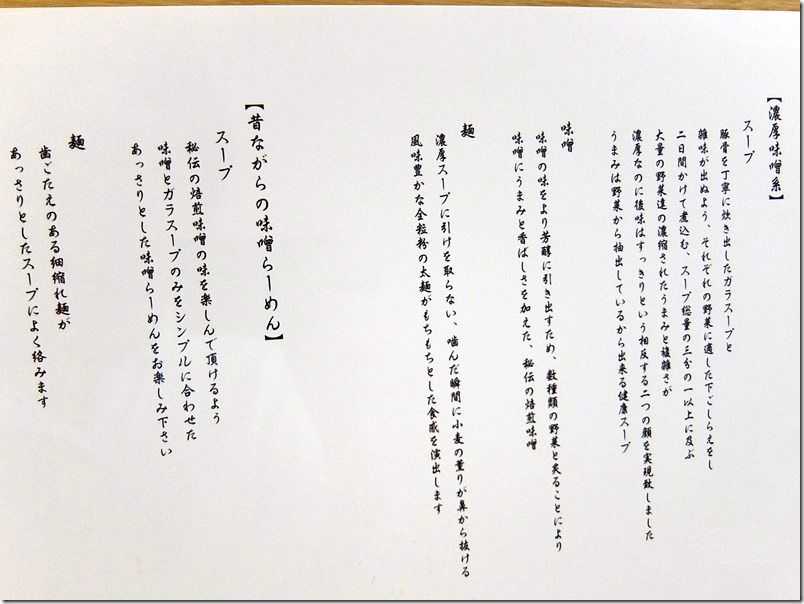 【濃厚味噌系】
スープ
豚骨を丁寧に炊き出したガラスープと
雑味が出ぬよう、それぞれの野菜に適した下ごしらえをし
二日間かけて煮込む、スープ総量の三分の一以上に及ぶ
大量の野菜達の濃縮されたうまみと複雑さが
濃厚なのに後味はすっきりという相反する二つの顔を実現致しました
うまみは野菜から抽出しているから出来る健康スープ
味噌
味噌の味をより芳醇に引き出すため、数種類の野菜と炙ることにより
味噌にうまみと香ばしさを加えた、秘伝の焙煎味噌
麺
濃厚スープに引けを取らない、噛んだ瞬間に小麦の薫りが鼻から抜ける
風味豊かな全粒粉の太麺がもちもちとした食感を演出します
【昔ながらの味噌らーめん】
スープ
秘伝の焙煎味噌の味を楽しんで頂けるよう
味噌とガラスープのみをシンプルに合わせた
あっさりとした味噌らーめんをお楽しみ下さい
麺
歯ごたえのある細縮れ麺が
あっさりとしたスープによく絡みます